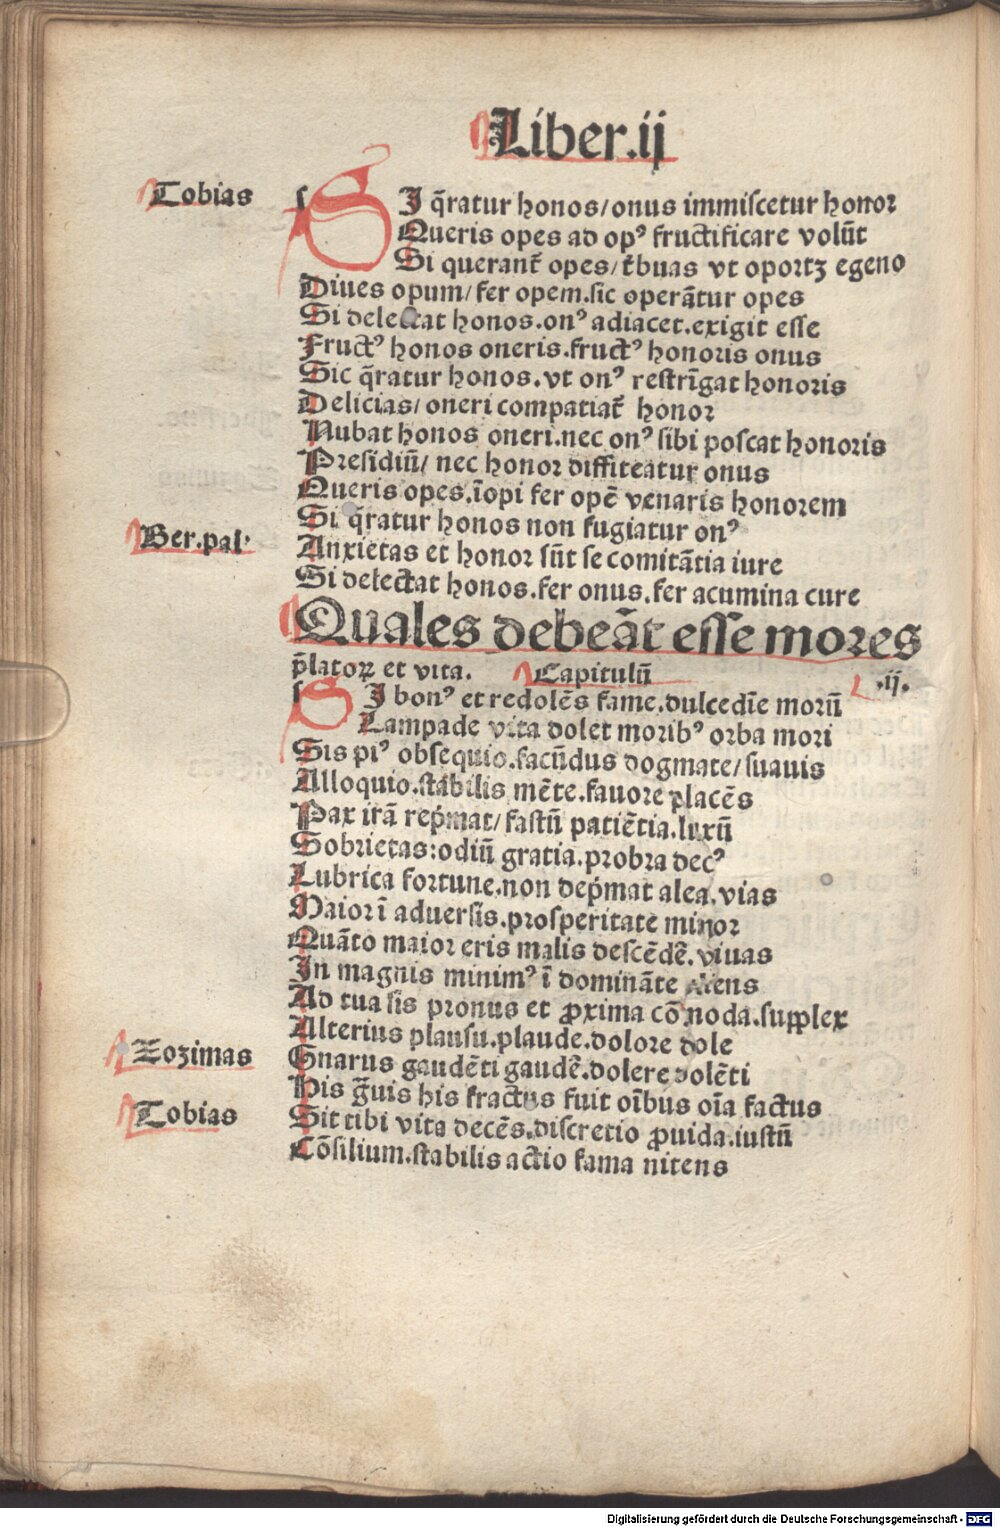 Liber.ij
Tobias
SI q̄ratur honos/onus immiscetur honor
Queris opes ad opꝰ fructificare volūt
Si querant̄ opes/t̄buas vt oportꝫ egeno
Diues opum/fer opem.sic operātur opes
Si delectat honos.onꝰ adiacet.exigit esse
Fructꝰ honos oneris.fructꝰ honoris onus
Sic q̄ratur honos.vt onꝰ restrīgat honoris
Delicias/oneri compatiat̄ honor
Nubat honos oneri.nec onꝰ sibi poscat honoris
Presidiū/ nec honor diffiteatur onus
Queris opes.īopi fer opē venaris honorem
Si q̄ratur honos non fugiatur onꝰ
Ber.pal.
Anxietas et honor sūt se comitātia iure
Si delectat honos.fer onus.fer acumina cure
Quales debeāt esse mores
p̄latoꝝ et vita. Capitulū .ij.
SI bonꝰ et redolēs fame.dulcedīe morū
Lampade vita dolet moribꝰ orba mori
Sis piꝰ obsequio.facūdus dogmate/suauis
Alloquio.stabilis mēte.fauore placēs
Pax irā rep̄mat/fastū patiētia.luxū
Sobrietas:odiū gratia.probra decꝰ
Lubrica fortune.non dep̄mat alea.vias
Maior ī aduersis.prosperitate minor
Quāto maior eris malis descēdē.viuas
In magnis minimꝰ ī domināte cliens
Ad tua sis pronus et ꝓxima cōmoda.supplex
Alterius plausu.plaude.dolore dole
Zozimas
Gnarus gaudēti gaudē.dolere dolēti
His ḡuis his fractus fuit oībus oīa factus
Tobias
Sit tibi vita decēs.discretio ꝓuida.iustū
Cōsilium.stabilis actio fama nitens
Digitalisierung gefördert durch die Deutsche Forschungsgemeinschaft - DFG